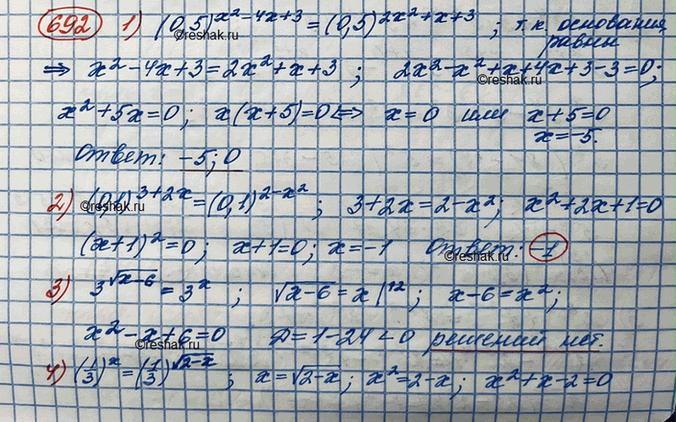 692 1) (0,5)^{x²-4x+3} = (0,5)^{2x²+x+3} ; т.к. основания равны
⇒ x²-4x+3=2x²+x+3 ; 2x²-x²+x+4x+3-3=0;
x²+5x=0; x(x+5)=0 ⇔ x=0 или x+5=0
x=-5.
Ответ: -5; 0
2) (0,1)^{3+2x} = (0,1)^{2-x²} ; 3+2x=2-x²; x²+2x+1=0
(x+1)²=0; x+1=0; x=-1 Ответ: -1
3) 3^{√x-6} = 3^x ; √x-6 = x |↑²; x-6=x²;
x²-x+6=0 D=1-24<0 решений нет.
4) (1/3)^x = (1/3)^{√2-x} ; x=√2-x; x²=2-x; x²+x-2=0
©reshak.ru
©reshak.ru
©reshak.ru
©reshak.ru
©reshak.ru